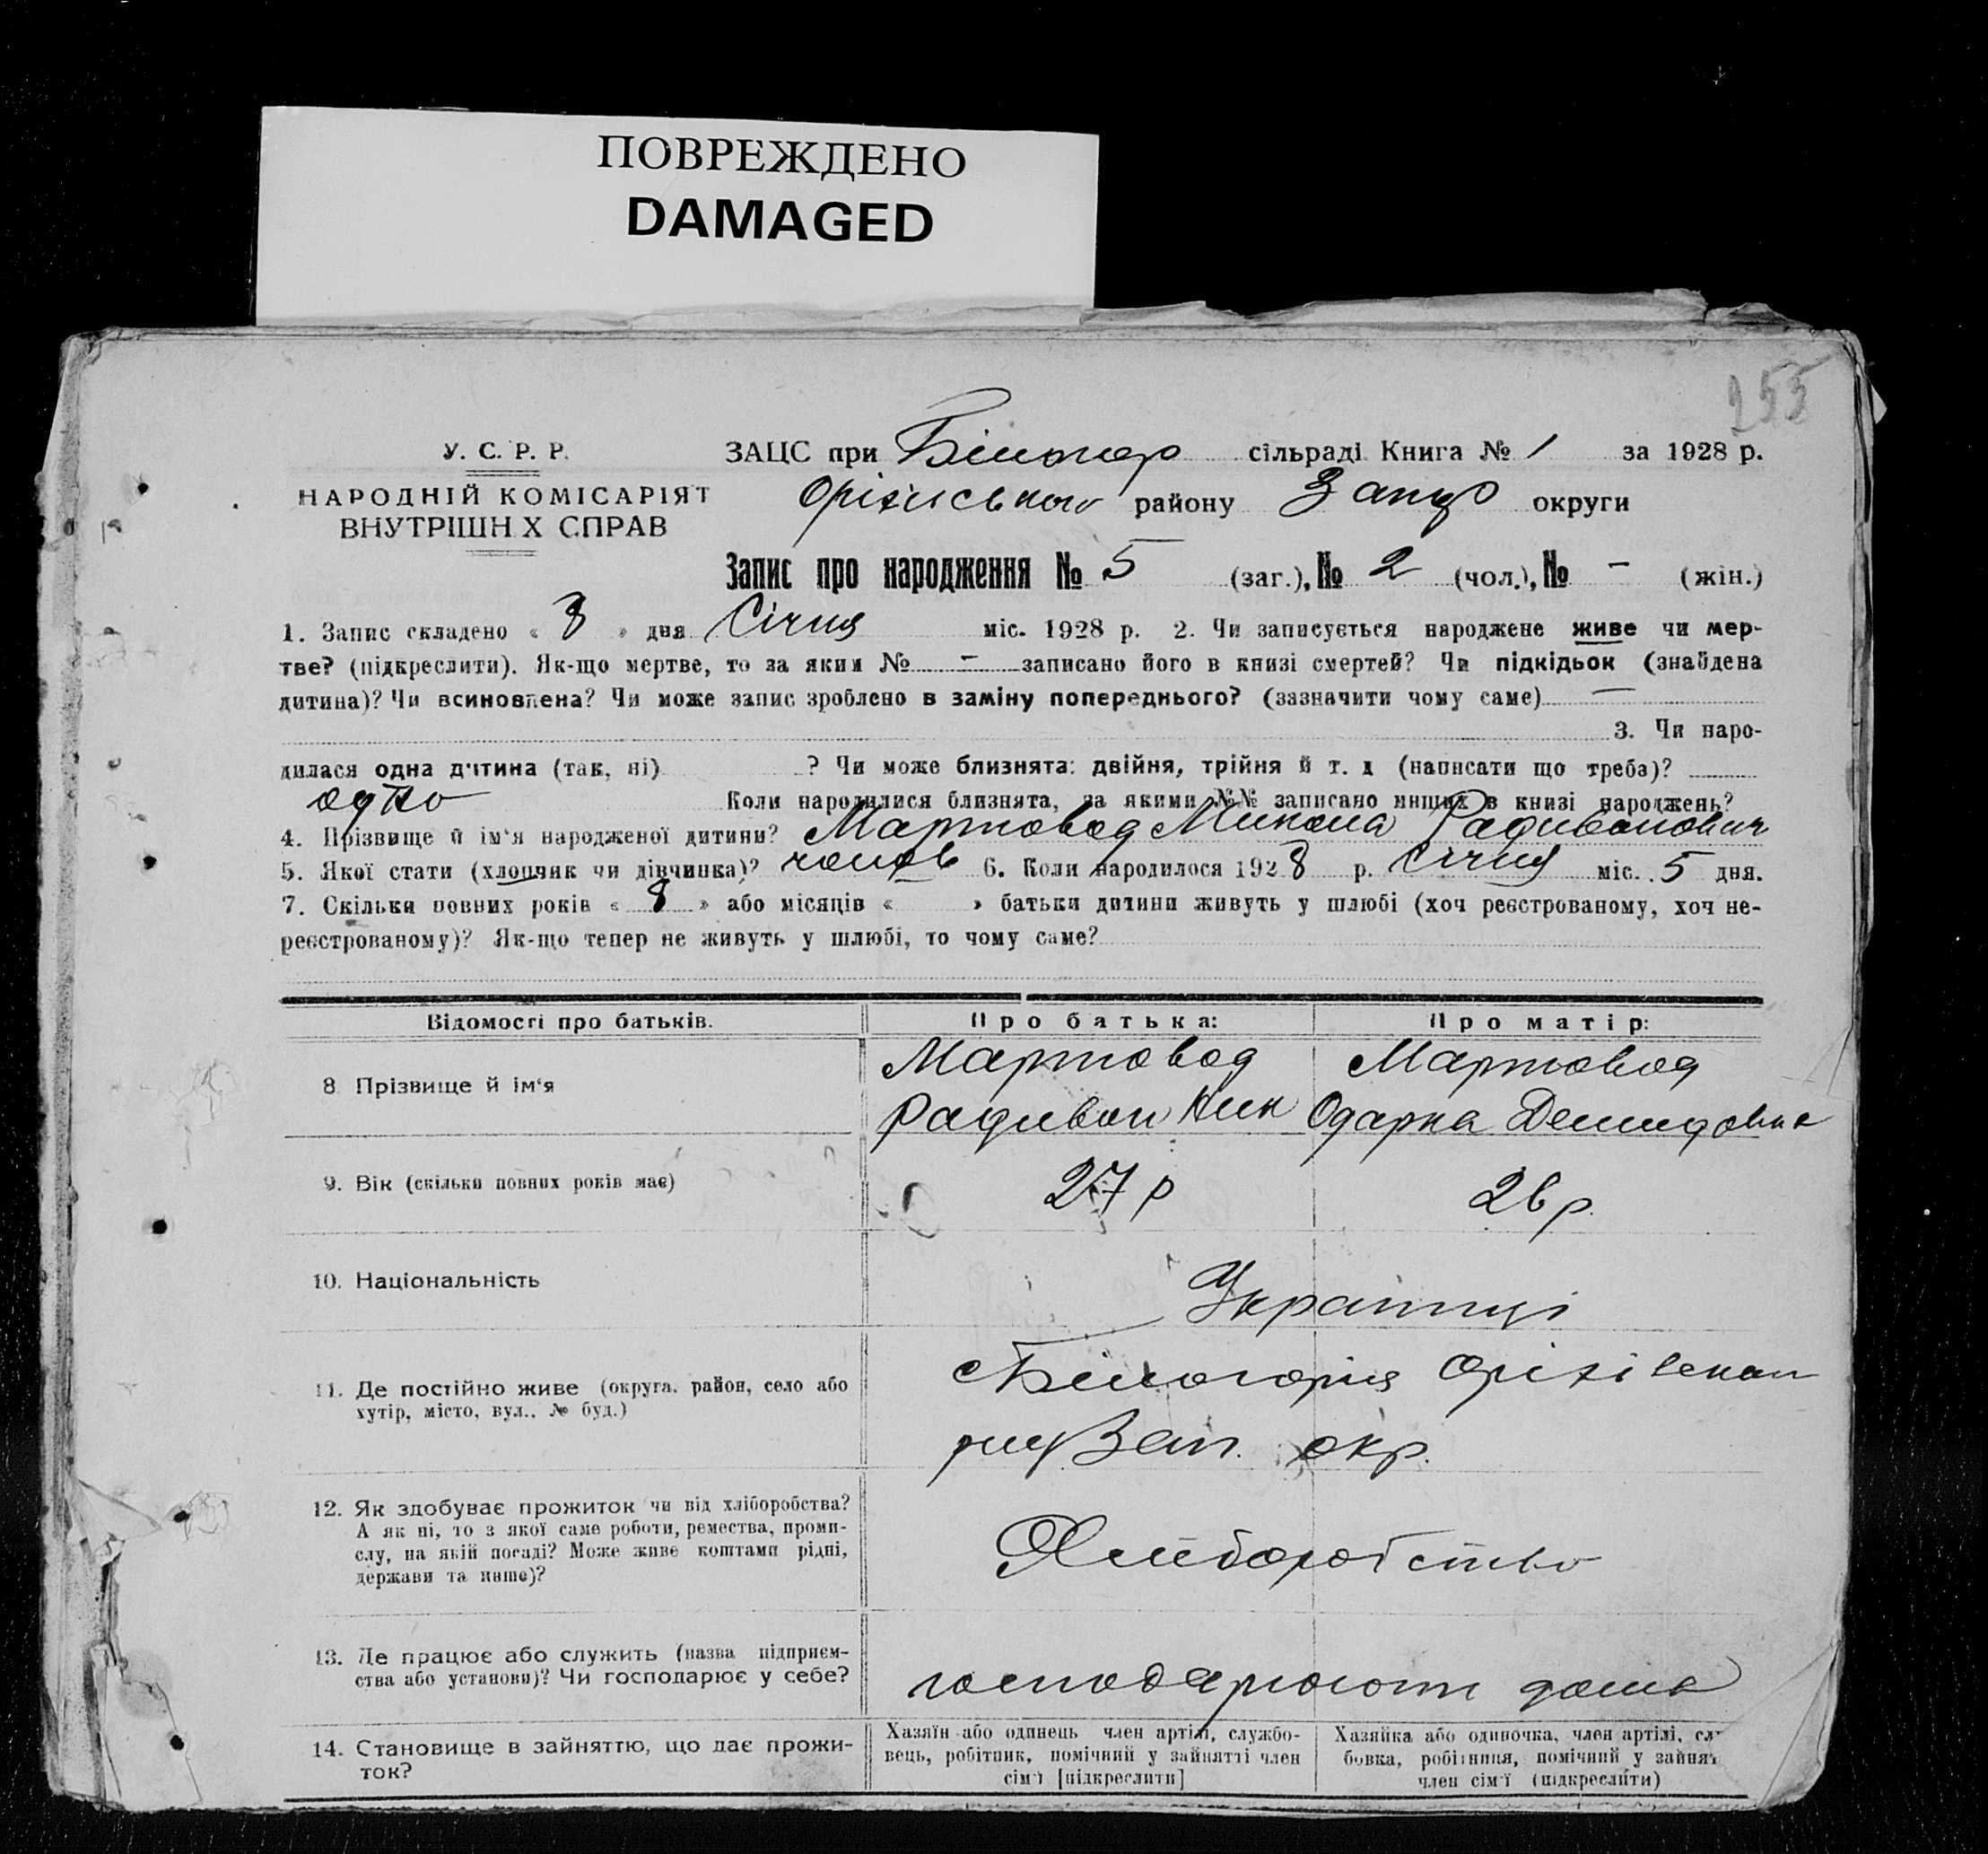 ПОВРЕЖДЕНО
DAMAGED
255
У. С. Р. Р.
НАРОДНІЙ КОМІСАРІЯТ
ВНУТРІШН Х СПРАВ
ЗАЦС при Білогор сільраді Книга № 1 за 1928 р.
Оріхівського району Запор округи
Запис про народження № 5 (заг.), № 2 (чол.), № - (жін.)
1. Запис складено « 8 » дня Січня міс. 1928 р. 2. Чи записується народжене живе чи мер-
тве? (підкреслити). Як-що мертве, то за яким № - записано його в книзі смертей? Чи підкідьок (знайдена
дитина)? Чи всиновлена? Чи може запис зроблено в заміну попереднього? (зазначити чому саме) —
3. Чи наро-
дилася одна дитина (так, ні) ? Чи може близнята: двійня, трійня й т. д (написати що треба)?
одно Коли народилися близнята, за якими №№ записано инших в книзі народжень?
4. Прізвище й ім'я народженої дитини? Мартовод Микола Радивонович
5. Якої стати (хлопчик чи дівчинка)? чолов 6. Коли народилося 1928 р. Січня міс. 5 дня.
7. Скільки повних років « 8 » або місяців « » батьки дитини живуть у шлюбі (хоч реєстрованому, хоч не-
реєстрованому)? Як-що тепер не живуть у шлюбі, то чому саме?
Відомості про батьків. Про батька: Про матір:
8 Прізвище й ім'я
Мартовод
Радивон Ник
Мартовод
Одарка Демидовна
9. Вік (скільки повних років має) 27 р 26 р.
10. Національність Українці
11. Де постійно живе (округа, район, село або
хутір, місто, вул., № буд.)
Білогорія Оріхівськ
Зап. окр.
12. Як здобуває прожиток чи від хліборобства?
А як ні, то з якої саме роботи, ремества, проми-
слу, на якій посаді? Може живе коштами рідні,
держави та инше)?
Хліборобство
13. Де працює або служить (назва підприєм-
ства або установи)? Чи господарює у себе?
господарюють дома
14. Становище в зайняттю, що дає прожи-
ток?
Хазяїн або одинець член артілі, службо-
вець, робітник, помічний у зайнятті член
сім'ї [підкреслити]
Хазяйка або одиночка, член артілі, слу
бовка, робітниця, помічний у зайнят
член сім'ї (підкреслити)